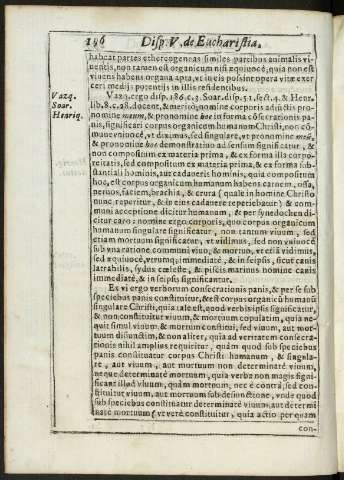 196 Disp. V. de Eucharistia.
habeat partes ethereogeneas similes partibus animalis vi-
uentis, non tamen est organicum nisi æquiuocè, quia non est
viuens habens organa apta, vt in eis possint opera vitæ exer
ceri medijs potentijs in illis residentibus.
Vazq. Vazq. ergo disp. 186. c. 3. Soar. disp. 51. sect. 4. & Henr.
Soar. lib. 8. c. 28. docent, & meritò, nomine corporis adiũctis pro
Henriq. nomine meum, & pronomine hoc in forma cõsecrationis pa-
nis, significari corpus organicum humanum Christi, non cõ-
muue vniuocè, vt diximus, sed singulare, vt pronomine meũ,
& pronomine hoc demonstratiuo ad sensum significatur, &
non compositum ex materia prima, & ex forma illa corpo-
reitatis, sed compositum ex materia prima, & ex forma sub-
stantiali hominis, aut cadaueris hominis, quia compositum
hoc, est corpus organicum humanum habens carnem, ossa,
neruos, faciem, brachia, & crura (quale in homine Christo
nunc reperitur, & in eius cadauere reperiebatur) & com-
muni acceptione dicitur humanum, & per synedochen di-
citur caro: nomine ergo corporis, quo corpus organicum
humanum singulare significatur, non tantum viuum, sed
etiam mortuum significatur, vt vidimus, sed non vniuocè
sub vna ratione communi viuo, & mortuo, vt etiã vidimus,
sed æquiuocè, vtrumq; immediatè, & in seipsis, sicut canis
latrabilis, sydus cœleste, & piscis marinus nomine canis
immediatè, & in seipsis significantur.
Ex vi ergo verborum consecrationis panis, & per se sub
speciebus panis constituitur, & est corpus organicũ humanũ
singulare Christi, quia tale est, quod verbis ipsis significatur,
& non constituitur viuum, & mortuum copulatim, quia ne-
quit simul viuum, & mortuum constitui, sed viuum, aut mor-
tuum disiunctim, & non aliter, quia ad veritatem consecra-
tionis nihil amplius requiritur, quàm quod sub speciebus
panis constituatur corpus Christi humanum, & singula-
re, aut viuum, aut mortuum non determinatè viuum,
neque determinatè mortuum, quia verba non magis signi-
ficant illud viuum, quàm mortuum, nec è contra, sed con-
stituitur viuum, aut mortuum sub disiunctione, vnde quod
sub speciebus constituatur determinatè viuum, aut determi
natè mortuum (vt verè constituitur, quia actio per quam
con-